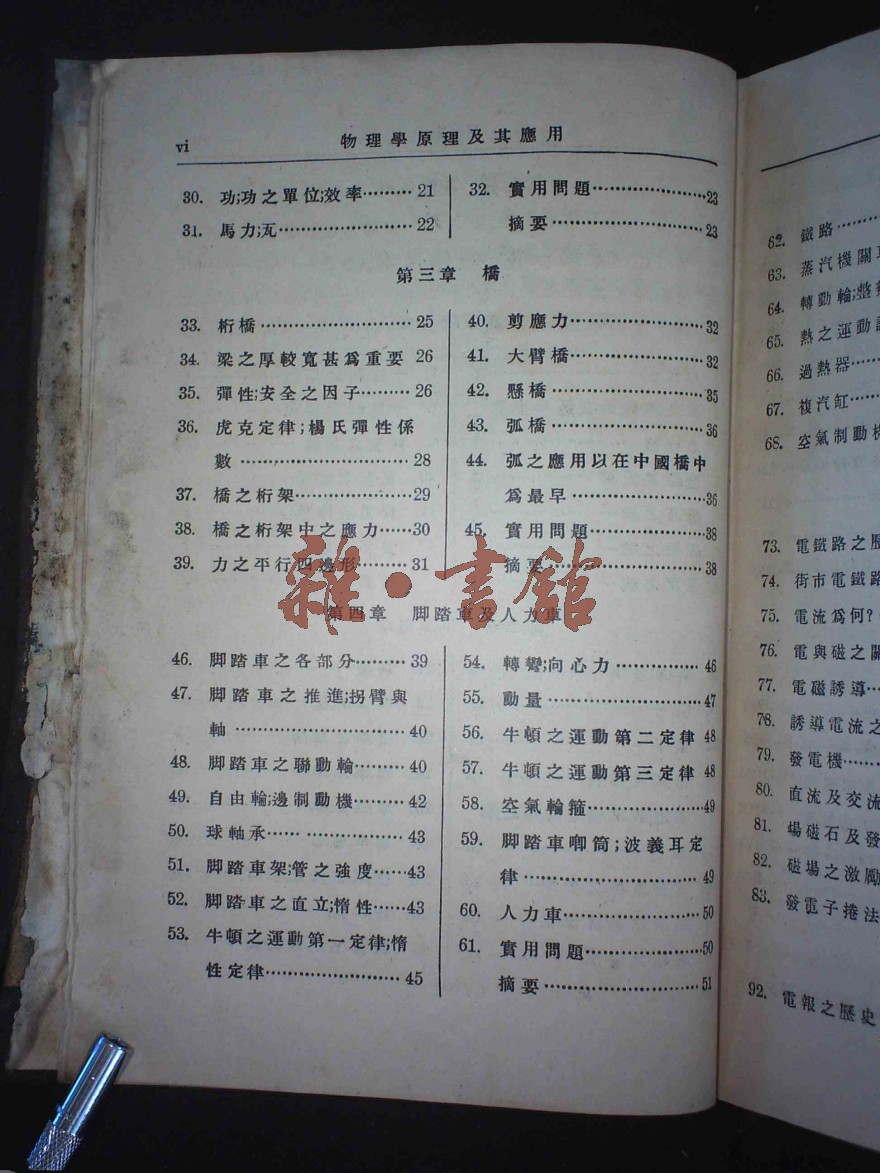 vi
物理學原理及其應用
30. 功;功之單位;效率………21
31. 馬力;瓦……………………22
32. 實用問題…………………23
摘要………………………23
第三章 橋
33. 桁橋………………………25
34. 梁之厚較寬甚爲重要 26
35. 彈性;安全之因子………26
36. 虎克定律;楊氏彈性係
數…………………………28
37. 橋之桁架…………………29
38. 橋之桁架中之應力……30
39. 力之平行四邊形………31
40. 剪應力……………………32
41. 大臂橋……………………32
42. 懸橋………………………35
43. 弧橋………………………36
44. 弧之應用以在中國橋中
爲最早……………………36
45. 實用問題…………………38
摘要………………………38
雜·書館
第四章 脚踏車及人力車
46. 脚踏車之各部分………39
47. 脚踏車之推進;拐臂與
軸…………………………40
48. 脚踏車之聯動輪………40
49. 自由輪;邊制動機………42
50. 球軸承…… ………………43
51. 脚踏車架;管之強度……43
52. 脚踏車之直立;惰性……43
53. 牛頓之運動第一定律;惰
性定律……………………45
54. 轉彎;向心力……………46
55. 動量………………………47
56. 牛頓之運動第二定律 48
57. 牛頓之運動第三定律 48
58. 空氣輪箍…………………49
59. 脚踏車唧筒;波義耳定
律…………………………49
60. 人力車……………………50
61. 實用問題…………………50
摘要………………………51
62. 鐵路……
63. 蒸汽機關
64. 轉動輪;整
65. 熱之運動
66. 過熱器……
67. 複汽缸……
68. 空氣制動機
73. 電鐵路之歷
74. 街市電鐵路
75. 電流爲何?
76. 電與磁之關
77. 電磁誘導…
78. 誘導電流之
79. 發電機……
80. 直流及交流
81. 場磁石及發
82. 磁場之激勵
83. 發電子捲法
92. 電報之歷史